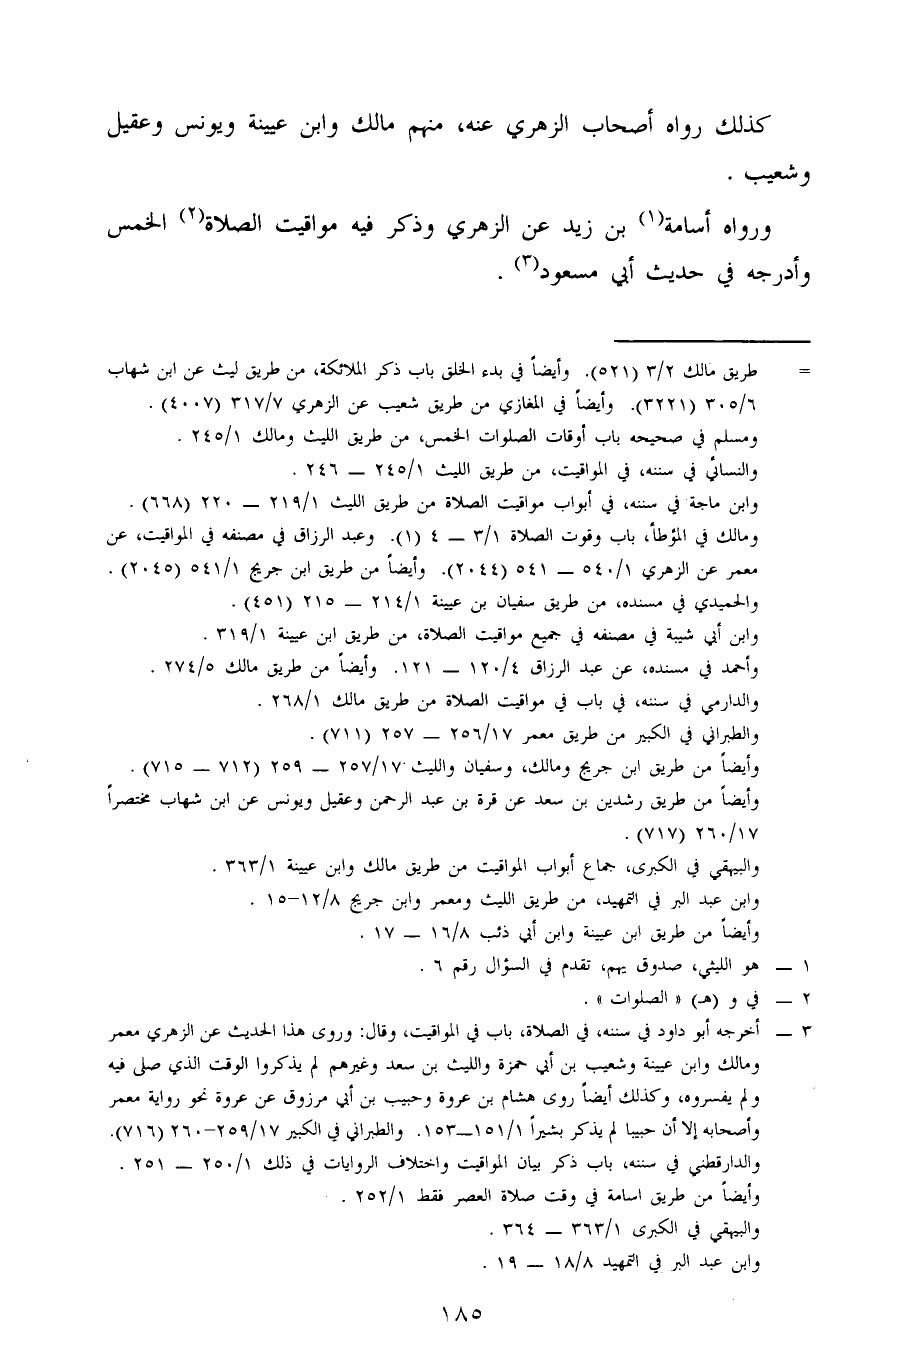 كذلك رواه أصحاب الزهري عنه، منهم مالك وابن عيينة ويونس وعقيل
وشعيب .
ورواه أسامة(١) بن زيد عن الزهري وذكر فيه مواقيت الصلاة(٢) الخمس
وأدرجه في حديث أبي مسعود(٣) .
= طريق مالك ٣/٢ (٥٢١). وأيضاً في بدء الخلق باب ذكر الملائكة، من طريق ليث عن ابن شهاب
٣٠٥/٦ (٣٢٢١). وأيضاً في المغازي من طريق شعيب عن الزهري ٣١٧/٧ (٤٠٠٧) .
ومسلم في صحيحه باب أوقات الصلوات الخمس، من طريق الليث ومالك ٢٤٥/١ .
والنسائي في سننه، في المواقيت، من طريق الليث ٢٤٥/١ — ٢٤٦ .
وابن ماجة في سننه، في أبواب مواقيت الصلاة من طريق الليث ٢١٩/١ — ٢٢٠ (٦٦٨) .
ومالك في المؤطأ، باب وقوت الصلاة ٣/١ — ٤ (١). وعبد الرزاق في مصنفه في المواقيت، عن
معمر عن الزهري ٥٤٠/١ — ٥٤١ (٢٠٤٤). وأيضاً من طريق ابن جريج ٥٤١/١ (٢٠٤٥) .
والحميدي في مسنده، من طريق سفيان بن عيينة ٢١٤/١ — ٢١٥ (٤٥١) .
وابن أبي شيبة في مصنفه في جميع مواقيت الصلاة، من طريق ابن عيينة ٣١٩/١ .
وأحمد في مسنده، عن عبد الرزاق ١٢٠/٤ — ١٢١. وأيضاً من طريق مالك ٢٧٤/٥ .
والدارمي في سننه، في باب في مواقيت الصلاة من طريق مالك ٢٦٨/١ .
والطبراني في الكبير من طريق معمر ٢٥٦/١٧ — ٢٥٧ (٧١١) .
وأيضاً من طريق ابن جريج ومالك، وسفيان والليث ٢٥٧/١٧ — ٢٥٩ (٧١٢ — ٧١٥) .
وأيضاً من طريق رشدين بن سعد عن قرة بن عبد الرحمن وعقيل ويونس عن ابن شهاب مختصراً
٢٦٠/١٧ (٧١٧) .
والبيهقي في الكبرى، جماع أبواب المواقيت من طريق مالك وابن عيينة ٣٦٣/١ .
وابن عبد البر في التمهيد، من طريق الليث ومعمر وابن جريج ١٢/٨–١٥ .
وأيضاً من طريق ابن عيينة وابن أبي ذئب ١٦/٨ — ١٧ .
١ — هو الليثي، صدوق يهم، تقدم في السؤال رقم ٦ .
٢ — في و (هـ) « الصلوات » .
٣ — أخرجه أبو داود في سننه، في الصلاة، باب في المواقيت، وقال: وروى هذا الحديث عن الزهري معمر
ومالك وابن عيينة وشعيب بن أبي حمزة والليث بن سعد وغيرهم لم يذكروا الوقت الذي صلى فيه
ولم يفسروه، وكذلك أيضاً روى هشام بن عروة وحبيب بن أبي مرزوق عن عروة نحو رواية معمر
وأصحابه إلا أن حبيبا لم يذكر بشيراً ١٥١/١—١٥٣. والطبراني في الكبير ٢٥٩/١٧–٢٦٠ (٧١٦).
والدارقطني في سننه، باب ذكر بيان المواقيت واختلاف الروايات في ذلك ٢٥٠/١ — ٢٥١ .
وأيضاً من طريق اسامة في وقت صلاة العصر فقط ٢٥٢/١ .
والبيهقي في الكبرى ٣٦٣/١ — ٣٦٤ .
وابن عبد البر في التمهيد ١٨/٨ — ١٩ .
١٨٥